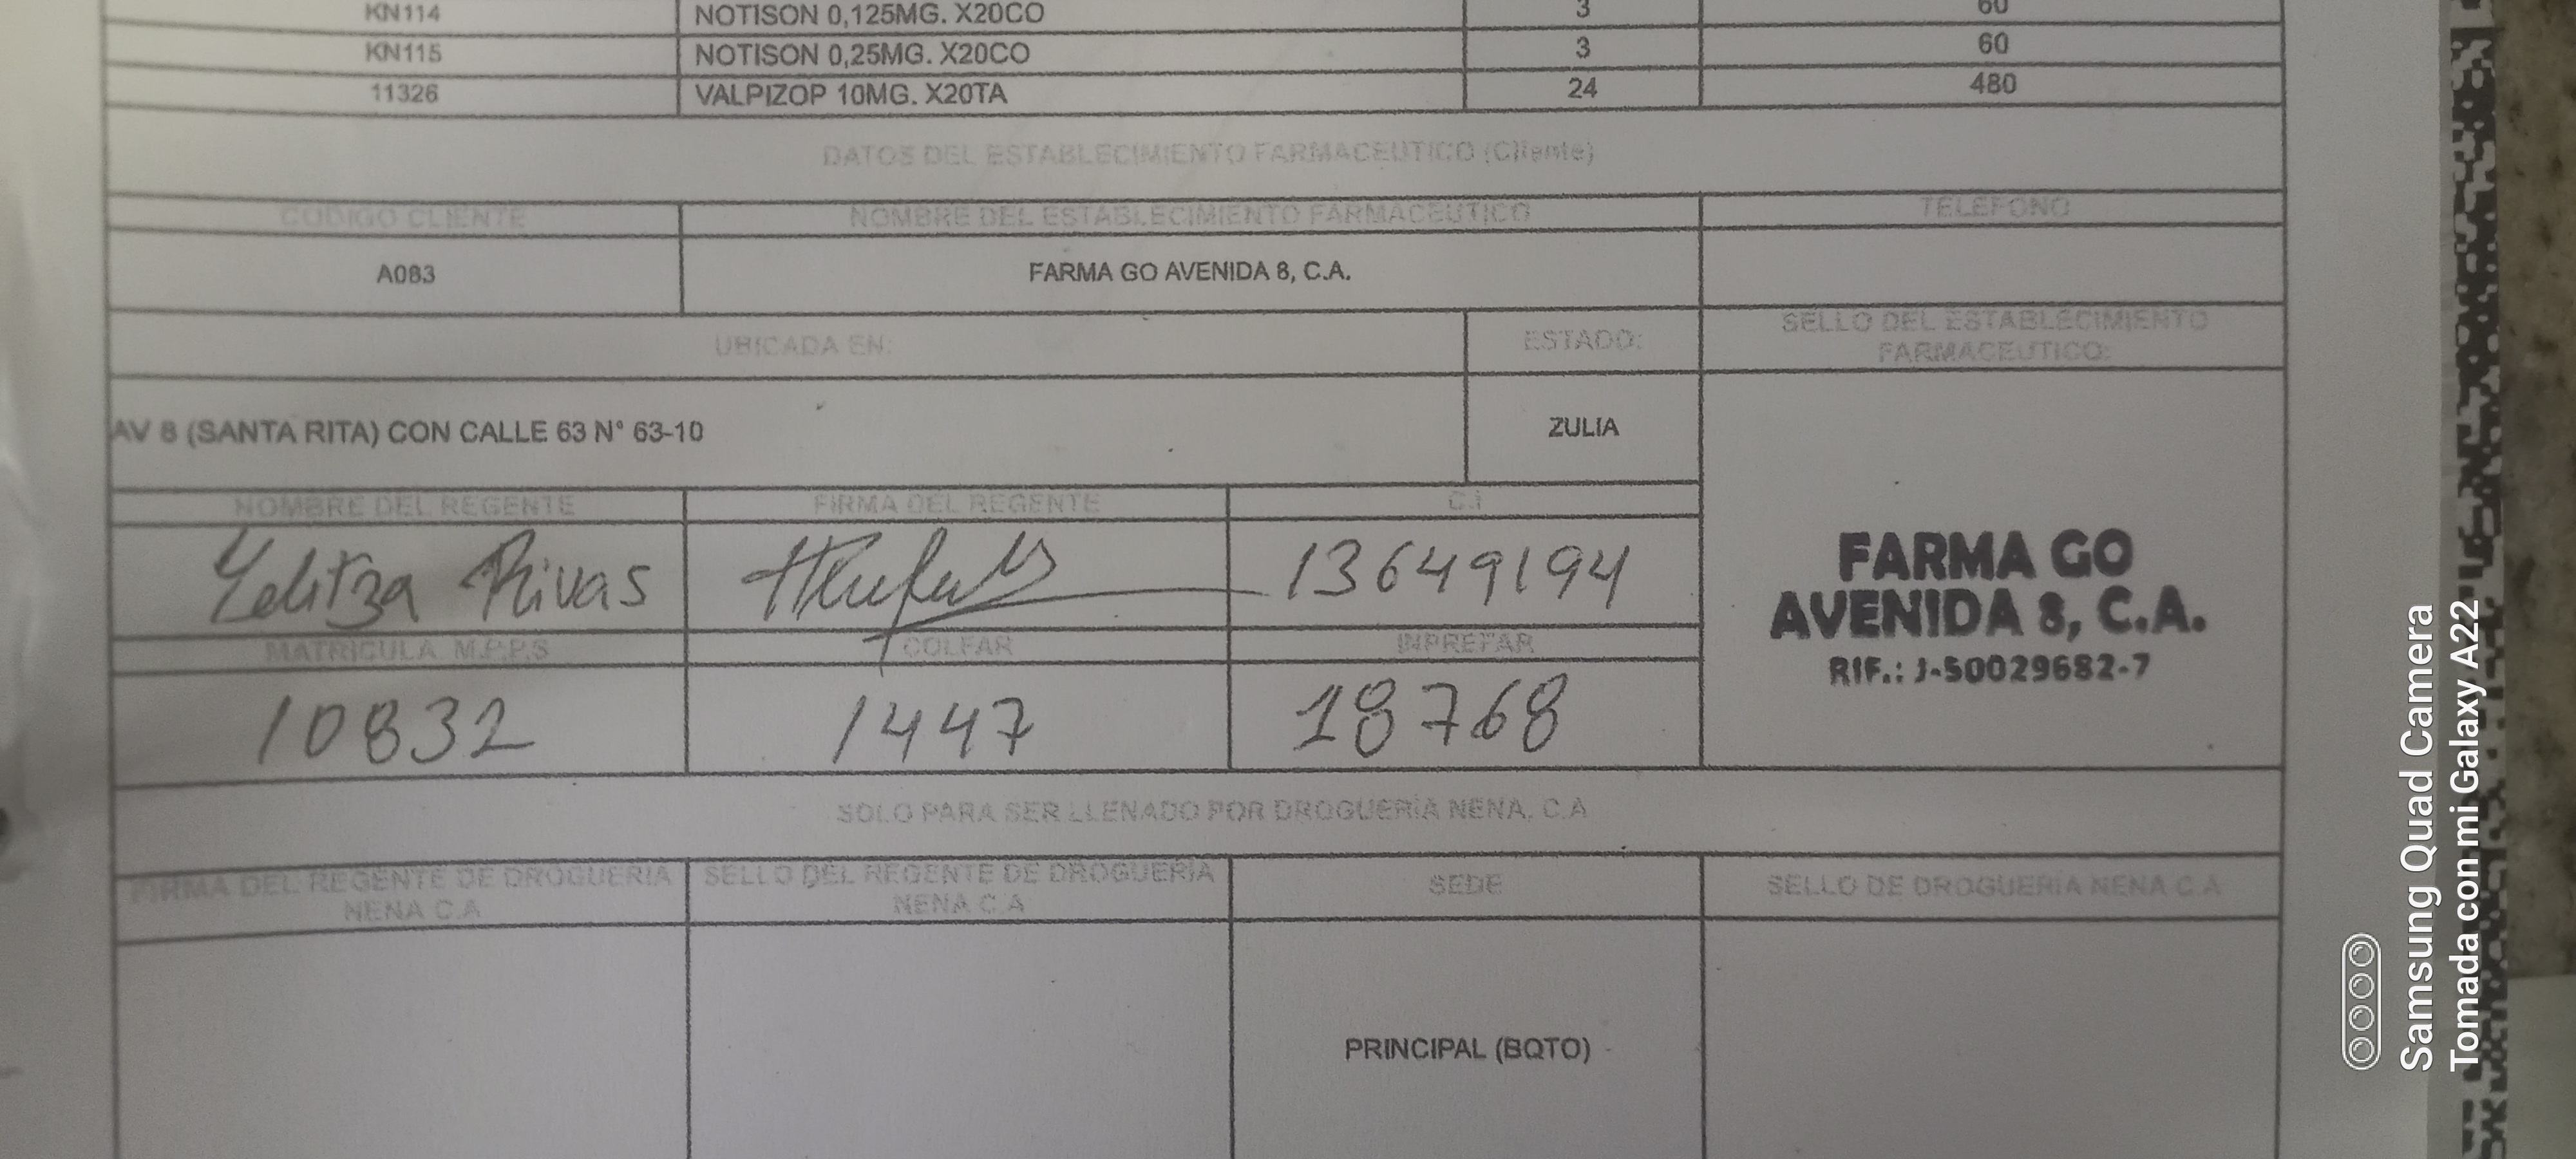 KN114 NOTISON 0,125MG. X20CO 3 60
KN115 NOTISON 0,25MG. X20CO 3 60
11326 VALPIZOP 10MG. X20TA 24 480
DATOS DEL ESTABLECIMIENTO FARMACEUTICO (Cliente)
CODIGO CLIENTE NOMBRE DEL ESTABLECIMIENTO FARMACEUTICO TELEFONO
A083 FARMA GO AVENIDA 8, C.A.
UBICADA EN: ESTADO: SELLO DEL ESTABLECIMIENTO
FARMACEUTICO:
AV 8 (SANTA RITA) CON CALLE 63 N° 63-10 ZULIA
NOMBRE DEL REGENTE FIRMA DEL REGENTE C.I
Yelitza Rivas 13649194
MATRICULA M.P.P.S COLFAR INPREFAR
10832 1447 18768
FARMA GO
AVENIDA 8, C.A.
RIF.: J-50029682-7
SOLO PARA SER LLENADO POR DROGUERÍA NENA, C.A
FIRMA DEL REGENTE DE DROGUERIA
NENA C.A
SELLO DEL REGENTE DE DROGUERÍA
NENA C.A
SEDE
SELLO DE DROGUERÍA NENA C.A
PRINCIPAL (BQTO)
Samsung Quad Camera
Tomada con mi Galaxy A22